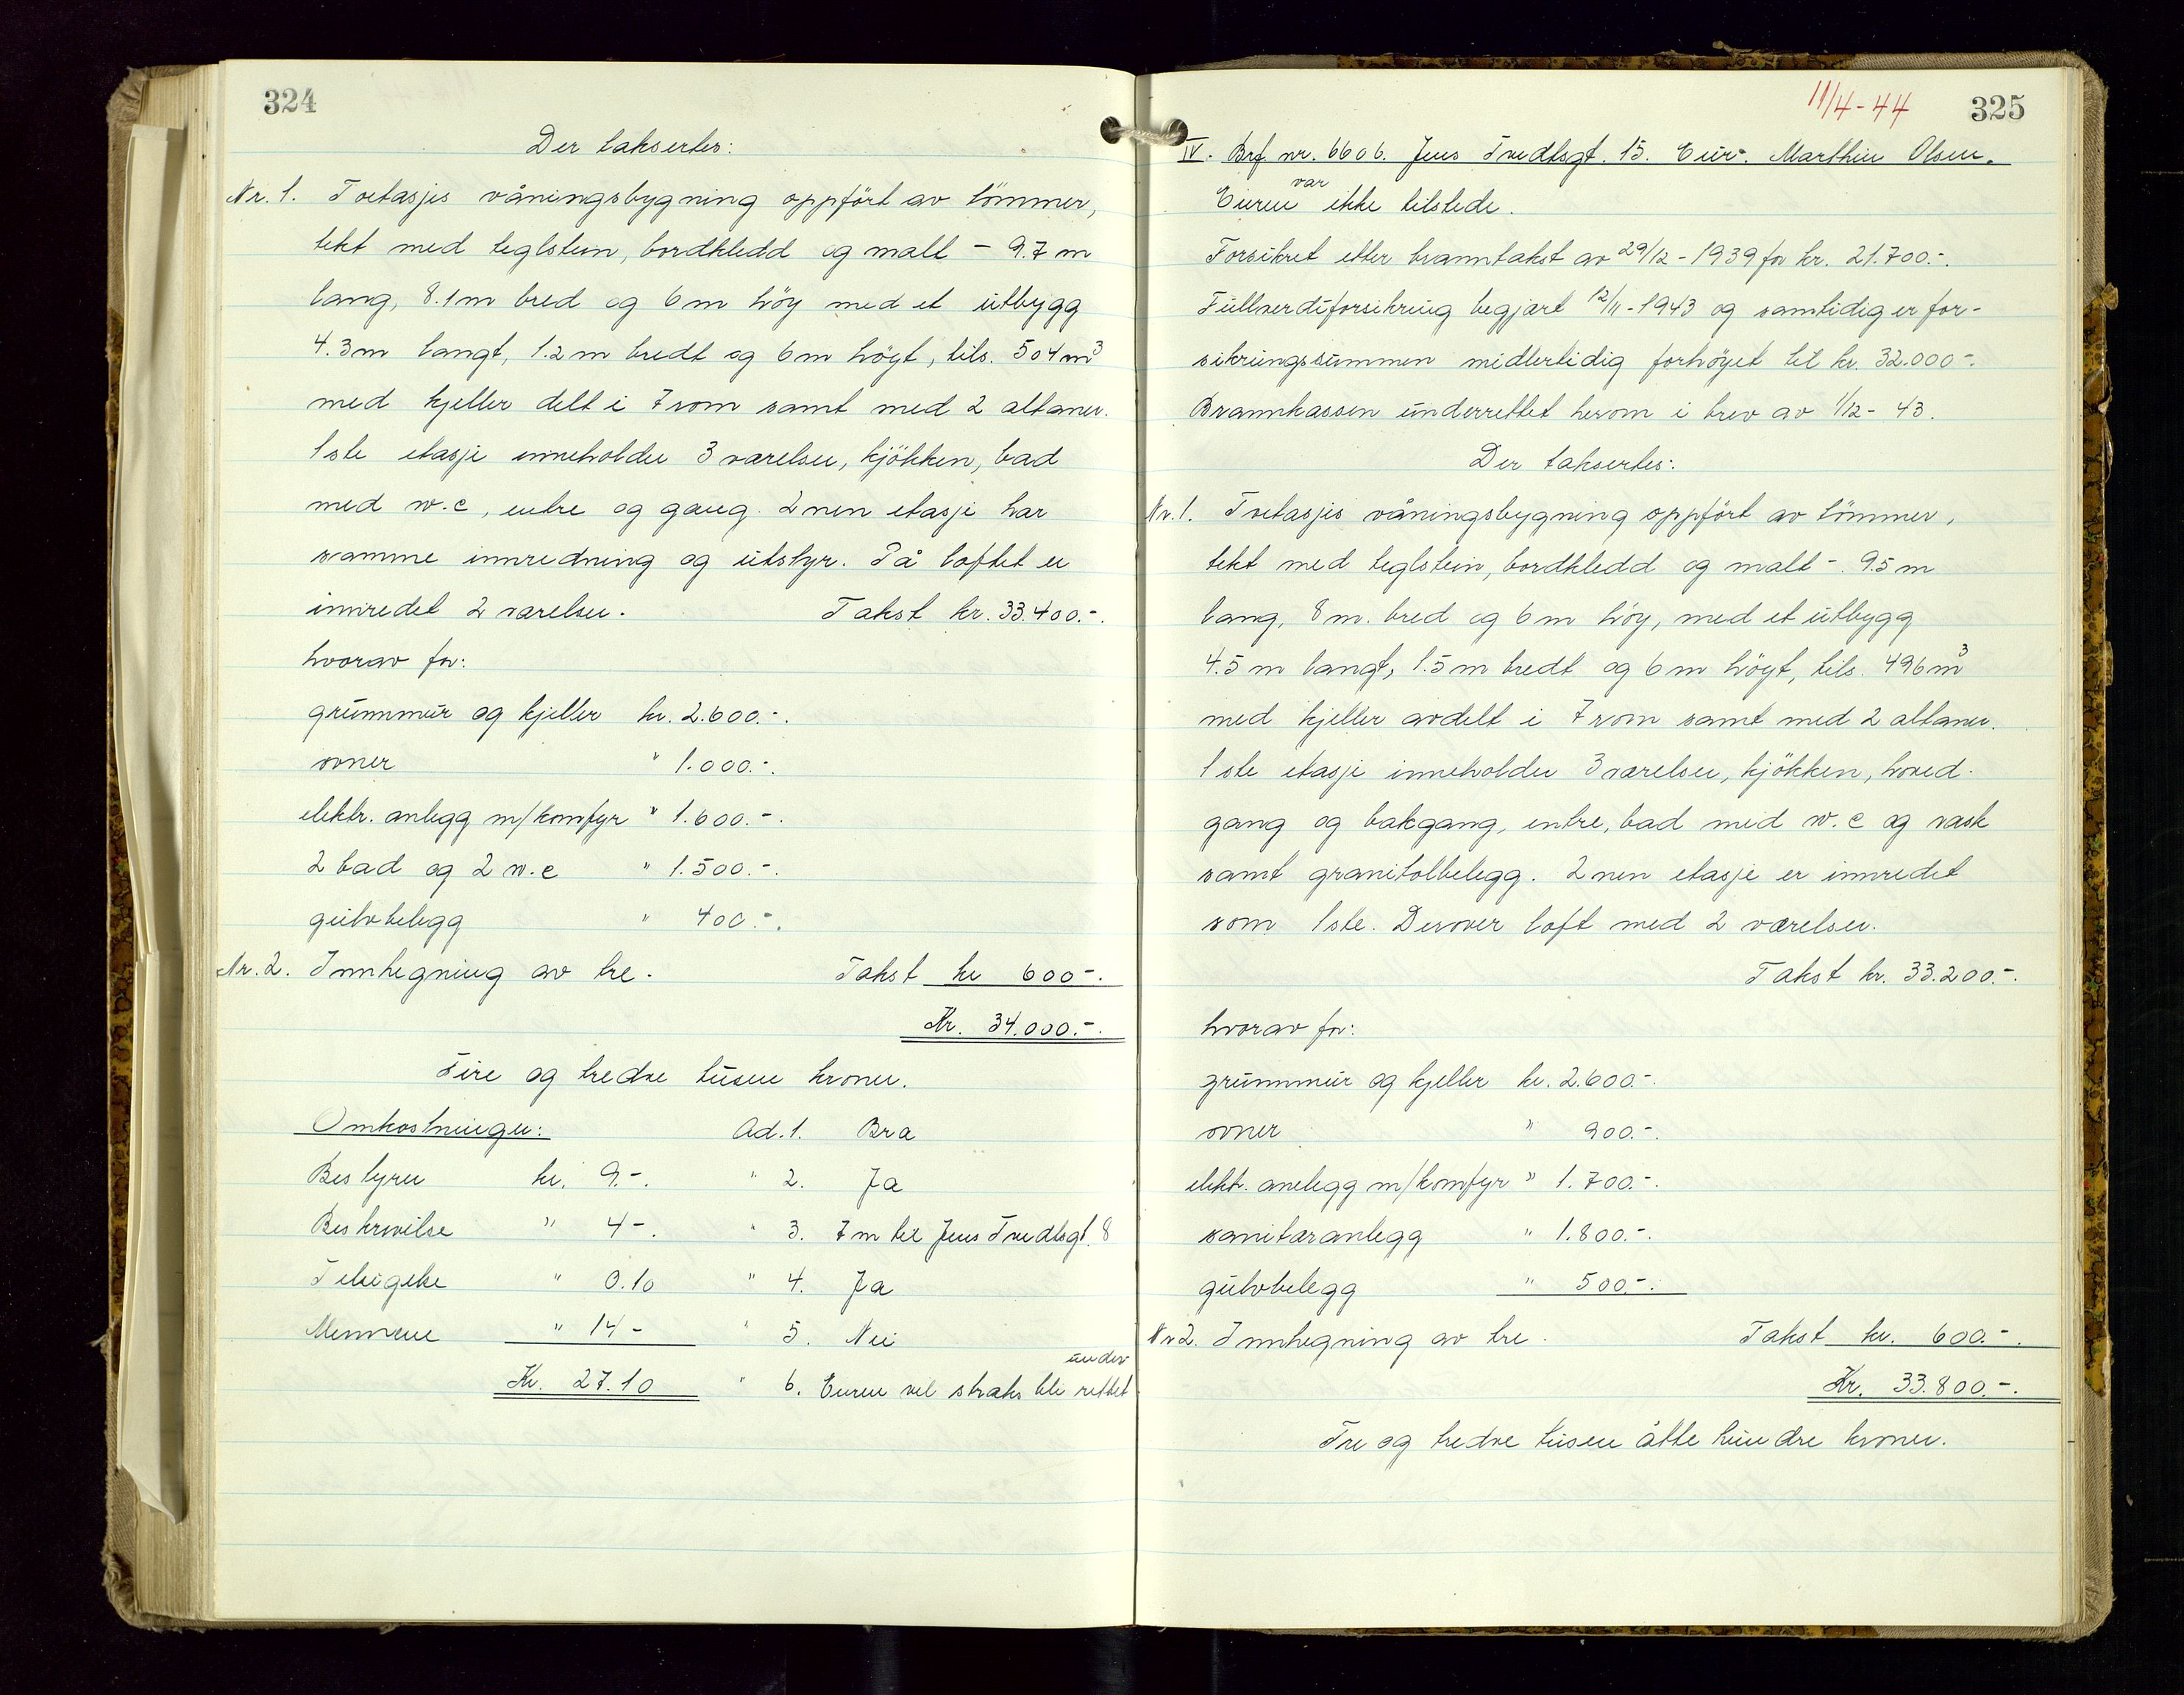 324
Der taksertes:
Nr. 1. Toetasjes våningsbygning oppført av tömmer,
tekt med teglstein, bordkledd og malt – 9.7 m
lang, 8.1 m bred og 6 m höy med et utbygg
4.3 m langt, 1.2 m bredt og 6 m höyt, tils. 504 m³
med kjeller delt i 7 rom samt med 2 altaner.
1ste etasje inneholder 3 værelser, kjökken, bad
med w.c, entre og gang. 2nen etasje har
samme innredning og utstyr. På loftet er
innredet 2 værelser. Takst kr. 33.400.-.
hvorav for:
grunnmur og kjeller kr. 2.600.-.
ovner " 1.000.-.
elektr. anlegg m/komfyr " 1.600.-.
2 bad og 2 w.c " 1.500.-.
gulvbelegg " 400.-.
Nr. 2. Innhegning av tre. Takst kr 600-.
Kr. 34.000.-.
Fire og tredve tusen kroner.
Omkostninger: Ad. 1. Bra
Bestyrer kr. 9.-. " 2. Ja
Beskrivelse " 4-. " 3. 7 m til Jens Tvedtsgt. 8
Teleigebe " 0.10 " 4. Ja
Mennene " 14- " 5. Nei
Kr. 27.10 " 6. Eieren vil straks bli underrettet
11/4-44 325
IV. Brf. nr. 6606. Jens Tvedtsgt. 15. Eier: Marthin Olsen.
Eieren var ikke tilstede.
Forsikret etter branntakst av 29/12-1939 for kr. 21.700.-.
Fullverdiforsikring begjært 12/11-1943 og samtidig er for-
sikringssummen midlertidig forhöyet til kr. 32.000-.
Brannkassen underrettet herom i brev av 1/12-43.
Der taksertes:
Nr. 1. Toetasjes våningsbygning oppfört av tömmer,
tekt med teglstein, bordkledd og malt -. 9.5 m
lang, 8 m. bred og 6 m höy, med et utbygg
4.5 m langt, 1.5 m bredt og 6 m höyt, tils. 496 m³
med kjeller avdelt i 7 rom samt med 2 altaner.
1ste etasje inneholder 3 værelser, kjökken, hoved-
gang og bakgang, entre, bad med w.c og vask
samt granitolbelegg. 2nen etasje er innredet
som 1ste. Derover loft med 2 værelser.
Takst kr. 33.200.-.
hvorav for:
grunnmur og kjeller kr. 2.600.-.
ovner " 900.-.
elekt. anelegg m/komfyr " 1.700.-.
sanitæranlegg " 1.800.-.
gulvbelegg " 500.-.
Nr 2. Innhegning av tre. Takst kr. 600.-.
Kr. 33.800.-.
Tre og tredve tusen åtte hundre kroner.